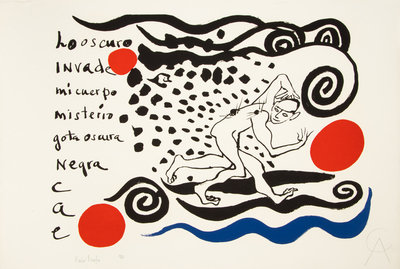 Lo oscuro
INVADE
mi cuerpo
misterio
gota oscura
Negra
c
a
e
CA